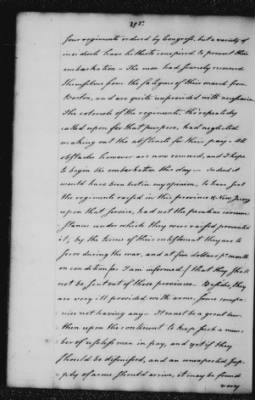 285.
four regiments ordered by Congress, but a variety of
incidents have hitherto conspired to prevent their
embarkation - The men had scarcely recovered
themselves from the fatigues of their march from
Boston, and are quite unprovided with necessaries.
The colonels of the regiments, tho' repeatedly
called upon for that purpose, had neglected
making out the abstracts for their pay - All
obstacles however are now removed, and I hope
to begin the embarkation this day - Indeed it
would have been best in my opinion, to have sent
the regiments raised in this province & New Jersey
upon that service, had not the peculiar circum-
stances under which they were raised prevented
it; by the terms of their inlistment they are to
serve during the war, and at five dollars pr month
on condition (as I am informed) that they shall
not be sent out of those provinces. Besides, they
are very ill provided with arms, some compa-
nies not having any - It must be a great bur-
then upon the continent to keep such a num-
ber of useless men in pay, and yet if they
should be dismissed, and an unexpected sup-
ply of arms should arrive, it may be found
very